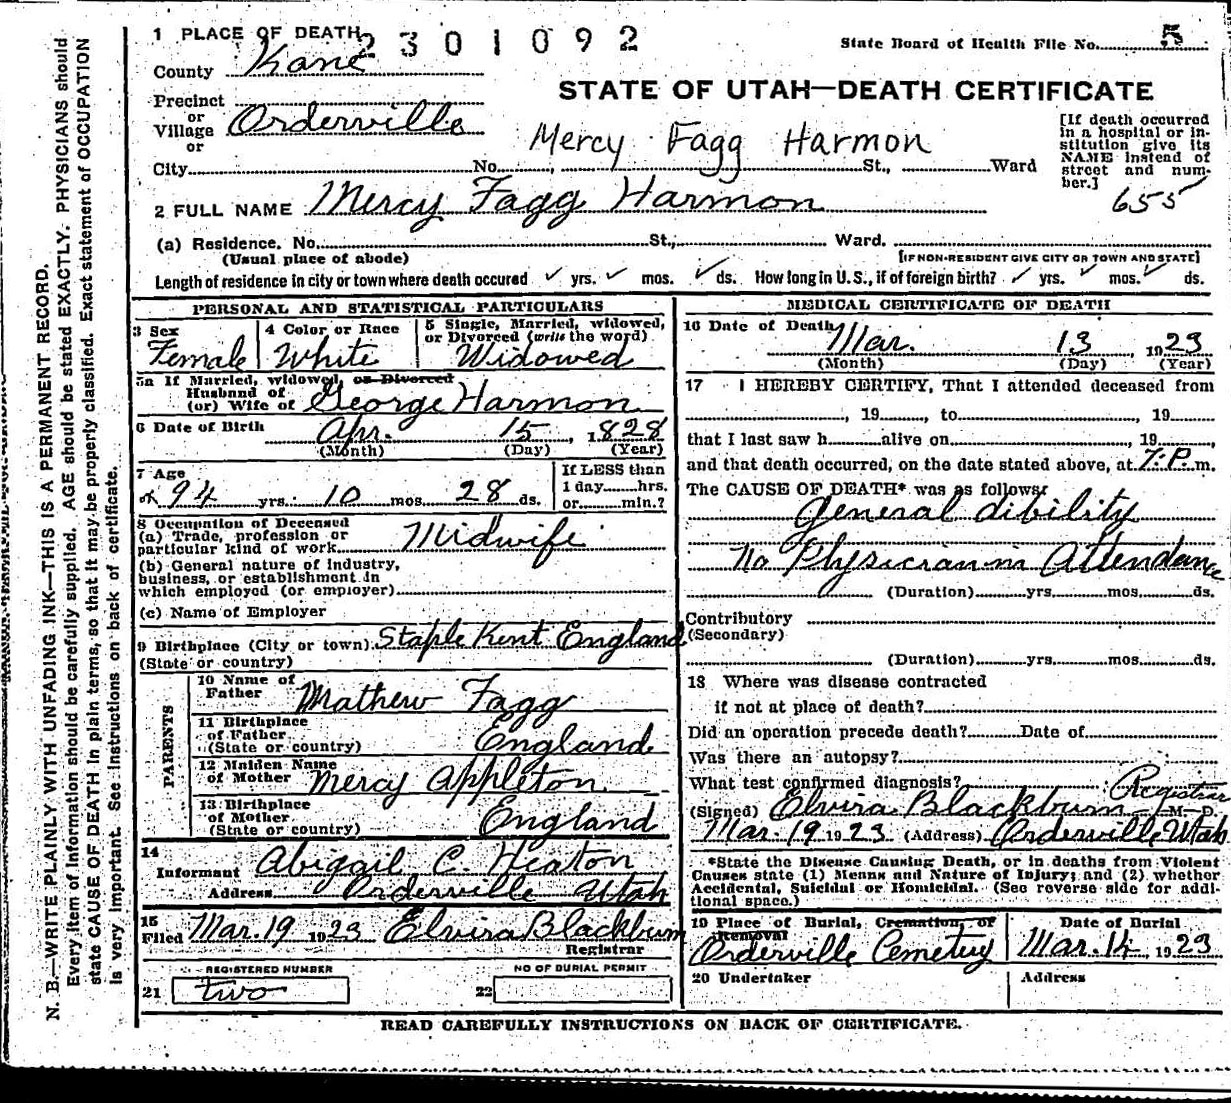 1 PLACE OF DEATH
2301092
State Board of Health File No. 5
County Kane
STATE OF UTAH—DEATH CERTIFICATE
Precinct
or
Village Orderville
or
Mercy Fagg Harmon
[If death occurred
in a hospital or in-
stitution give its
NAME instead of
street and num-
ber.]
City No. St., Ward
655
2 FULL NAME Mercy Fagg Harmon
(a) Residence. No. St., Ward.
(Usual place of abode) [IF NON-RESIDENT GIVE CITY OR TOWN AND STATE]
Length of residence in city or town where death occured ✓ yrs. ✓ mos. ✓ ds. How long in U.S., if of foreign birth? ✓ yrs. ✓ mos. ✓ ds.
PERSONAL AND STATISTICAL PARTICULARS
3 Sex
Female
4 Color or Race
White
5 Single, Married, widowed,
or Divorced (write the word)
Widowed
5a If Married, widowed, or Divorced
Husband of
(or) Wife of George Harmon
6 Date of Birth
Apr. 15, 1828
(Month) (Day) (Year)
7 Age
94 yrs. 10 mos. 28 ds.
If LESS than
1 day hrs.
or min.?
8 Occupation of Deceased
(a) Trade, profession or
particular kind of work Midwife
(b) General nature of industry,
business, or establishment in
which employed (or employer)
(c) Name of Employer
9 Birthplace (City or town) Staple Kent England
(State or country)
PARENTS
10 Name of
Father Mathew Fagg
11 Birthplace
of Father
(State or country) England
12 Maiden Name
of Mother Mercy Appleton
13 Birthplace
of Mother
(State or country) England
14
Informant Abigail C. Heaton
Address Orderville Utah
15
Filed Mar. 19 1923 Elvira Blackburn
Registrar
REGISTERED NUMBER
21 two
NO OF BURIAL PERMIT
22
MEDICAL CERTIFICATE OF DEATH
16 Date of Death
Mar. 13, 1923
(Month) (Day) (Year)
17 I HEREBY CERTIFY, That I attended deceased from
, 19 , to 19
that I last saw h alive on , 19 ,
and that death occurred, on the date stated above, at 7. P. m.
The CAUSE OF DEATH* was as follows:
general dibility
No Physician in Attendance
(Duration) yrs. mos. ds.
Contributory
(Secondary)
(Duration) yrs. mos. ds.
18 Where was disease contracted
if not at place of death?
Did an operation precede death? Date of
Was there an autopsy?
What test confirmed diagnosis?
Registrar
(Signed) Elvira Blackburn M. D.
Mar. 19 1923 (Address) Orderville Utah
*State the Disease Causing Death, or in deaths from Violent
Causes state (1) Means and Nature of Injury; and (2) whether
Accidental, Suicidal or Homicidal. (See reverse side for addi-
tional space.)
19 Place of Burial, Cremation, or
Removal
Orderville Cemetuy
Date of Burial
Mar. 14, 1923
20 Undertaker
Address
READ CAREFULLY INSTRUCTIONS ON BACK OF CERTIFICATE.
N. B.—WRITE PLAINLY WITH UNFADING INK—THIS IS A PERMANENT RECORD.
Every item of information should be carefully supplied. AGE should be stated EXACTLY. PHYSICIANS should
state CAUSE OF DEATH in plain terms, so that it may be properly classified. Exact statement of OCCUPATION
is very important. See instructions on back of certificate.